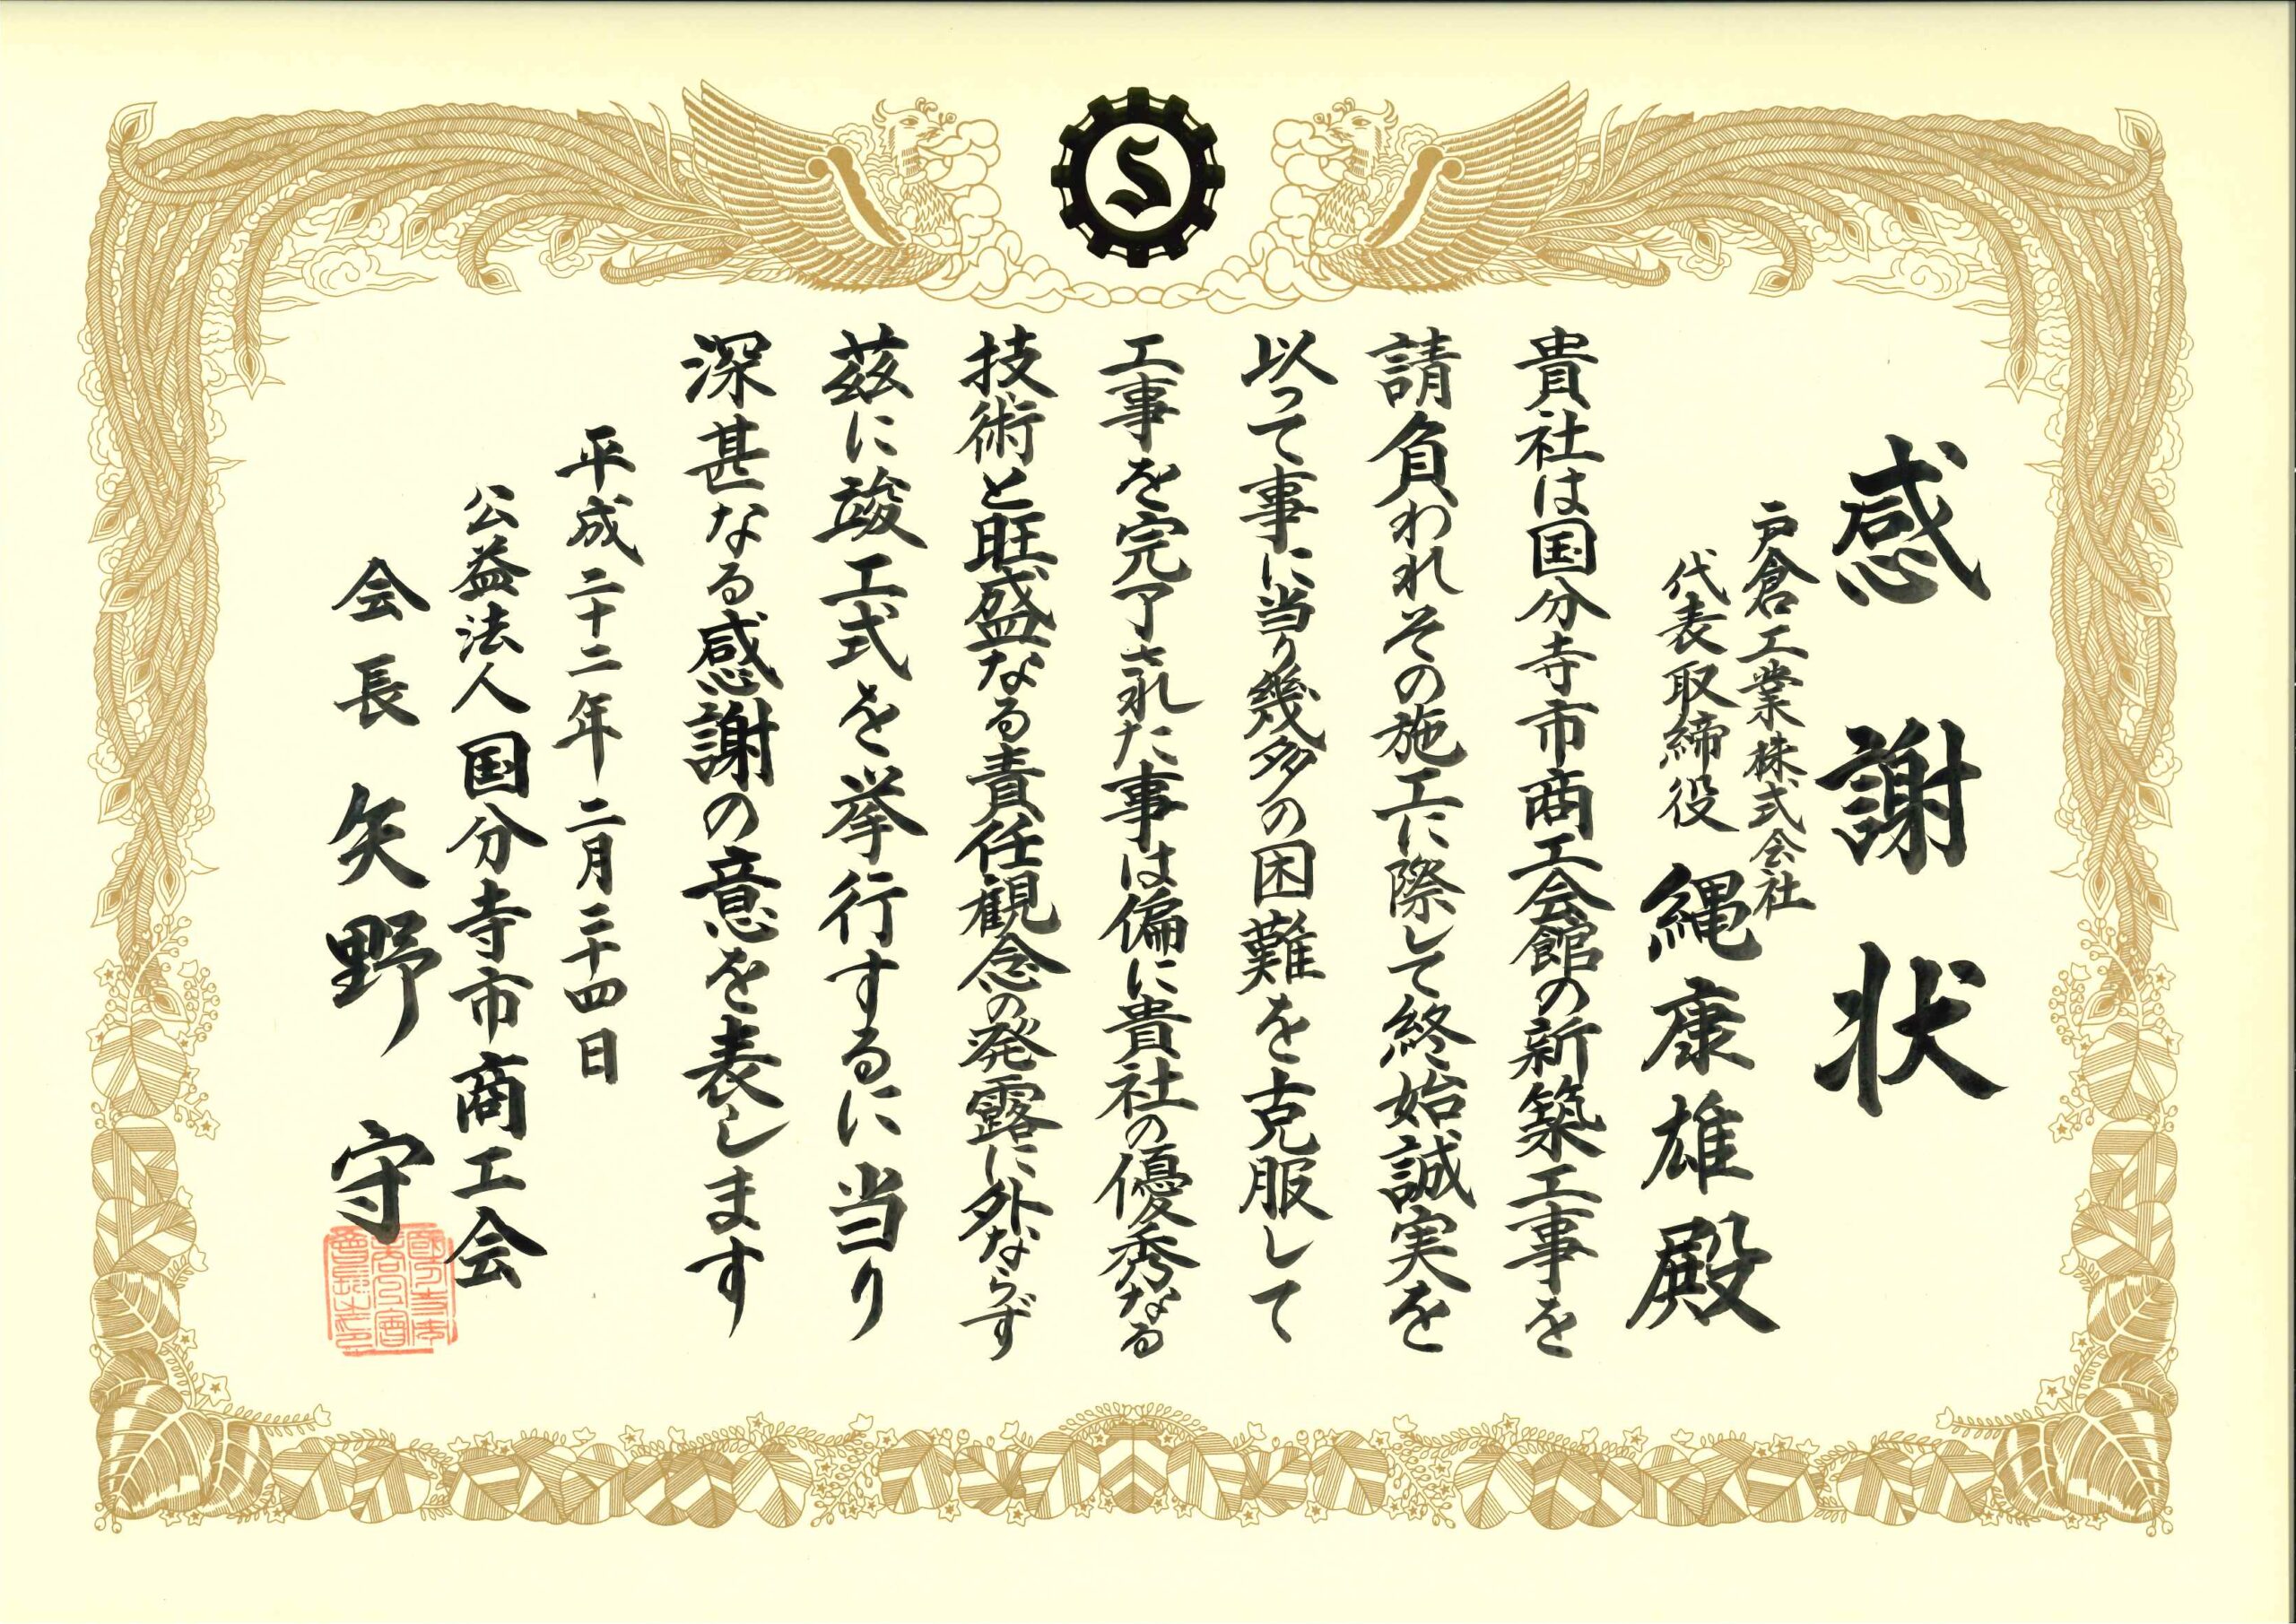 S
感謝状
戸倉工業株式会社
代表取締役 縄康雄殿
貴社は国分寺市商工会館の新築工事を
請負われその施工に際して終始誠実を
以って事に当り幾多の困難を克服して
工事を完了された事は偏に貴社の優秀なる
技術と旺盛なる責任観念の発露に外ならず
茲に竣工式を挙行するに当り
深甚なる感謝の意を表します
平成二十二年二月二十四日
公益法人国分寺市商工会
会長 矢野 守